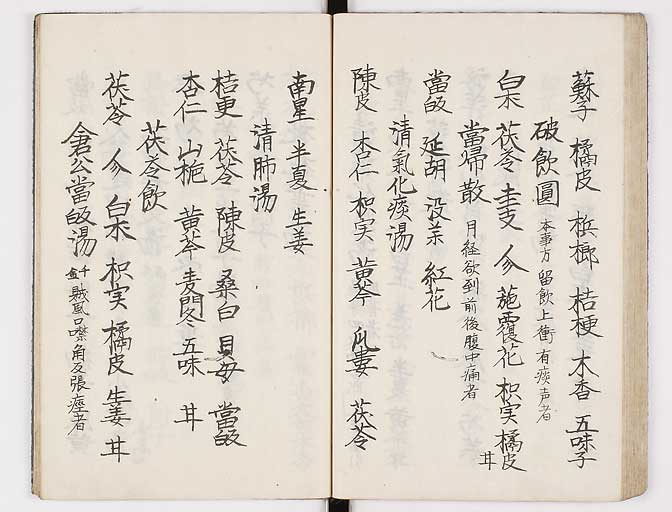 蘇子 橘皮 梹榔 桔梗 木香 五味子
破飲圓 本事方 留飲上衝有痰声者
白朮 茯苓 圭支 參 旋覆花 枳実 橘皮 甘
當帰散 月経欲到前後腹中痛者
當皈 延胡 没茶 紅花
清氣化痰湯
陳皮 杏仁 枳実 黄芩 瓜妻 茯苓
南星 半夏 生姜
清肺湯
桔更 茯苓 陳皮 桑白 貝母 當皈
杏仁 山梔 黄芩 麦門冬 五味 甘
茯苓飲
茯苓 參 白朮 枳実 橘皮 生姜 甘
倉公當皈湯 千金 賊風口噤角反張痙者